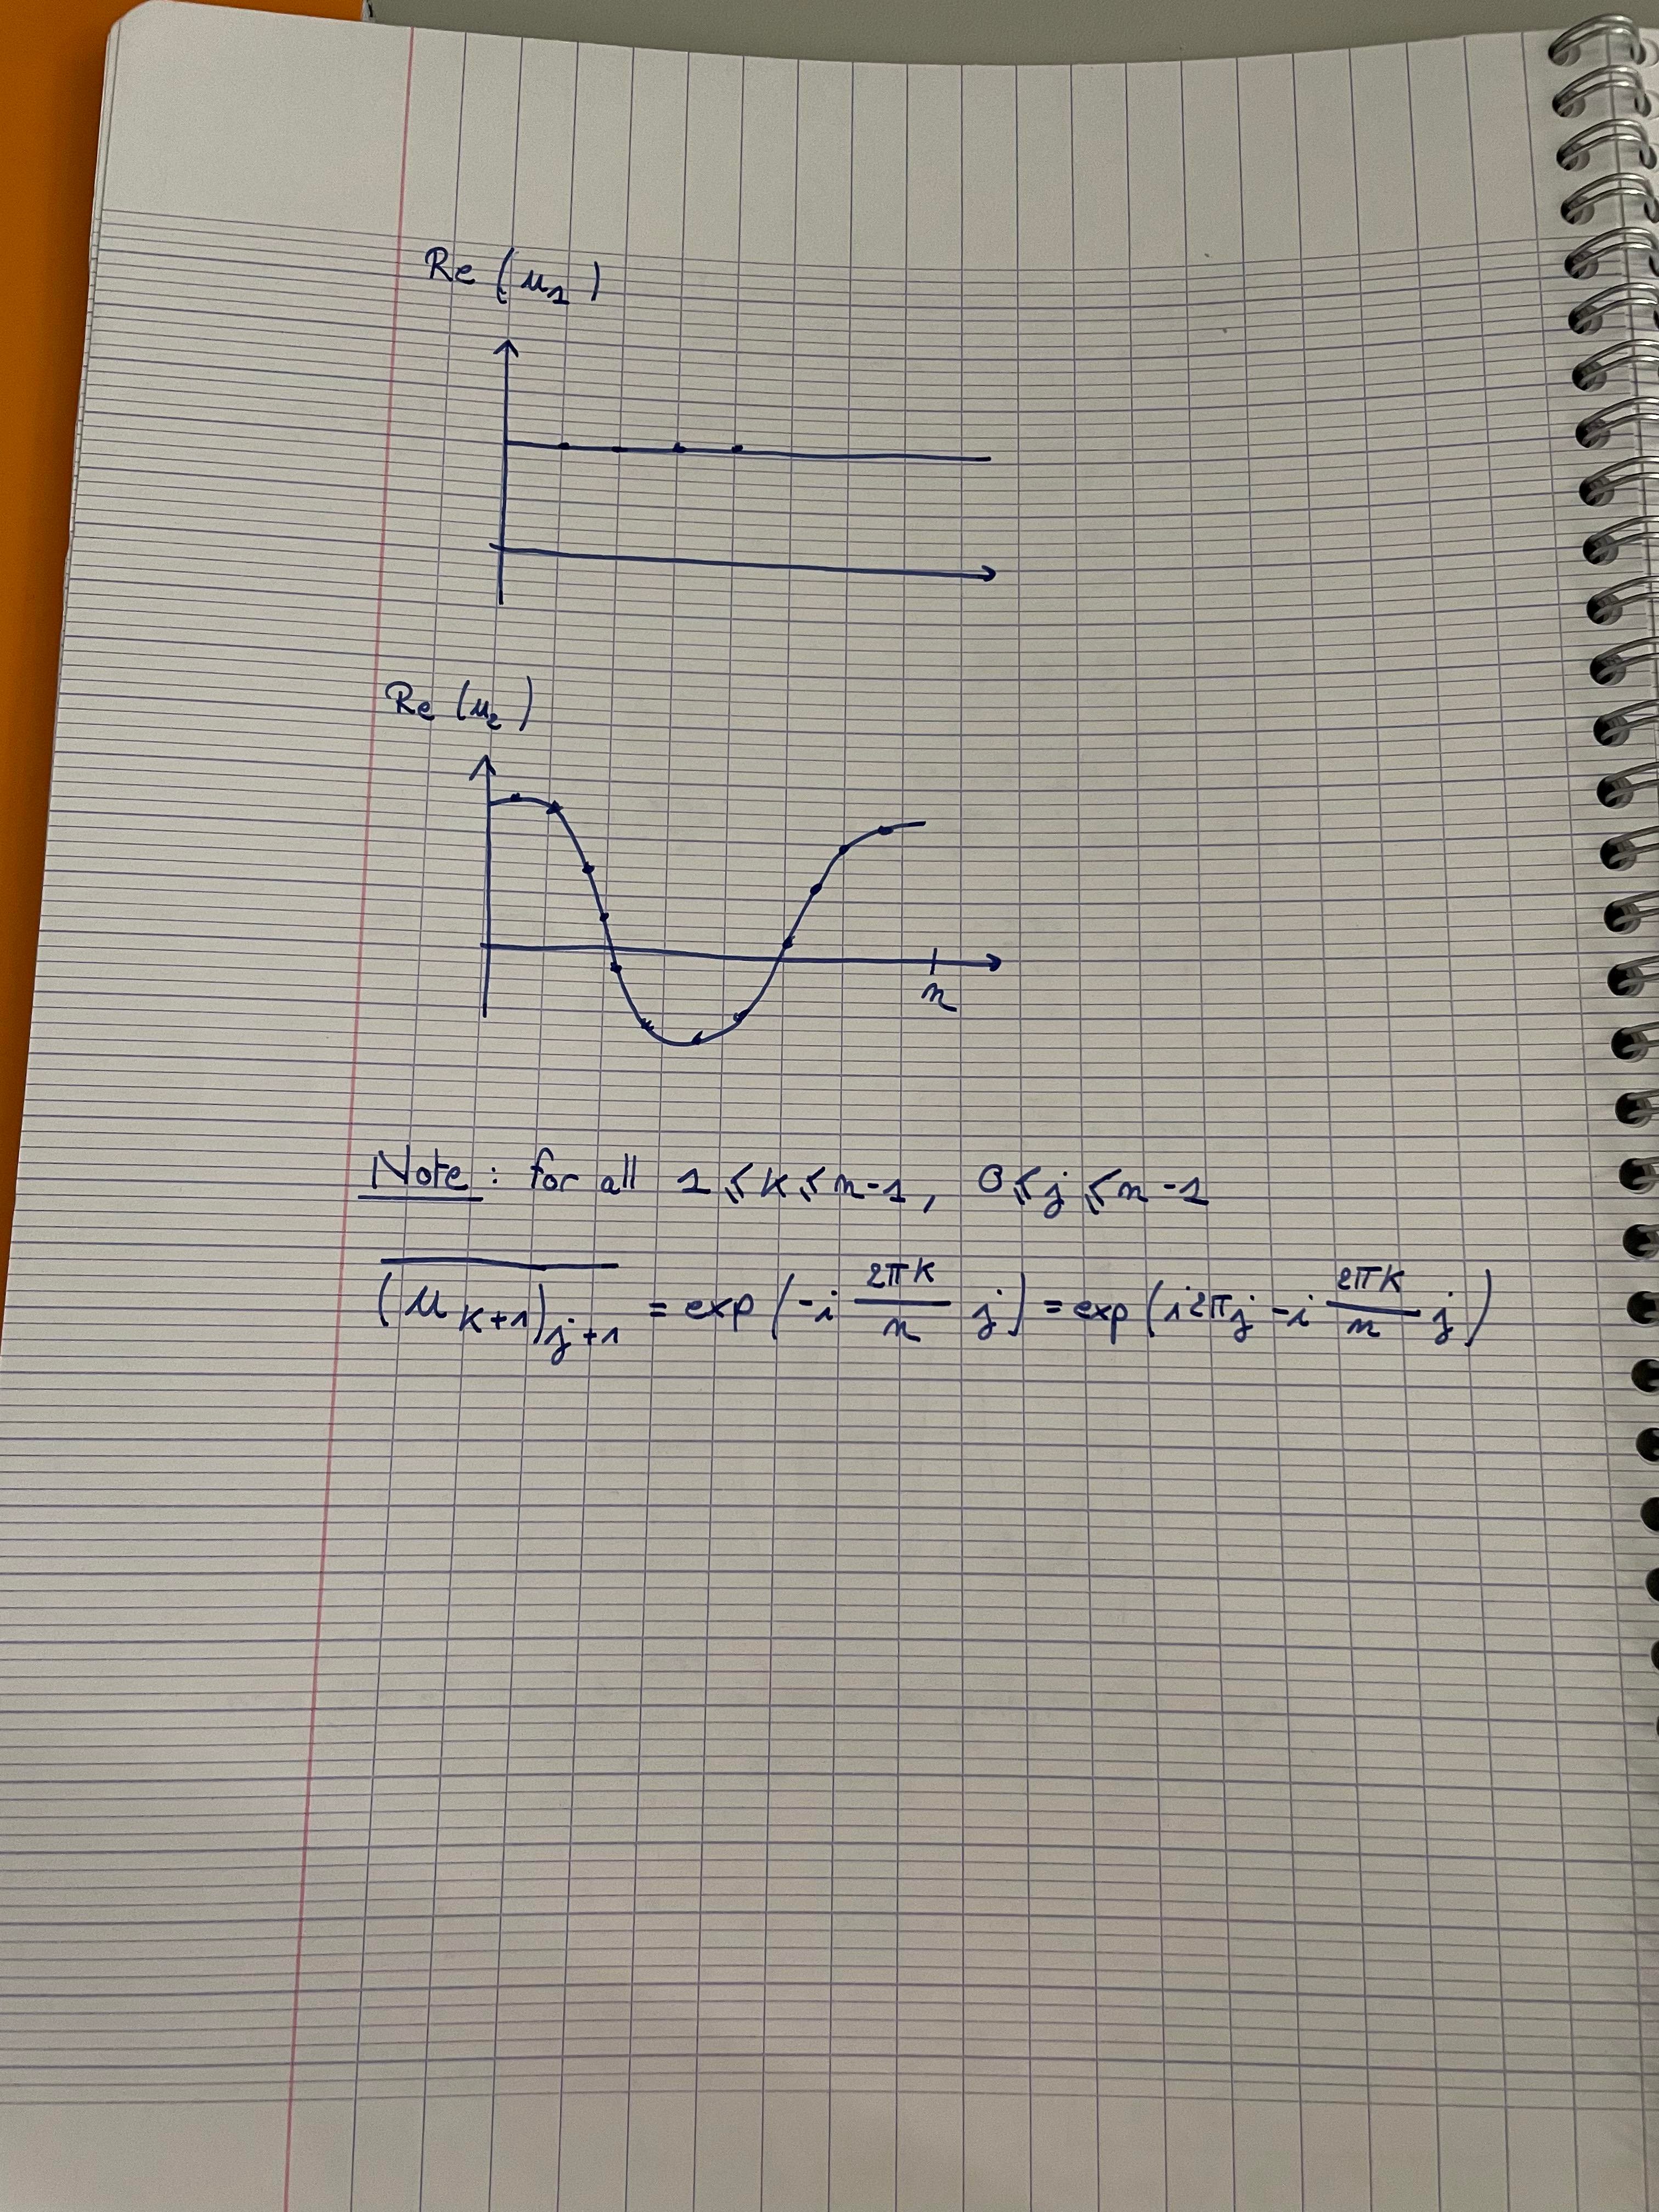 Re (u₁)
Re (u₂)
n
Note : for all 1 ⩽ k ⩽ n-1, 0 ⩽ j ⩽ n-1
\overline{(u_{k+1})_{j+1}} = exp(-i \frac{2πk}{n} j) = exp(i2πj - i \frac{2πk}{n} j)